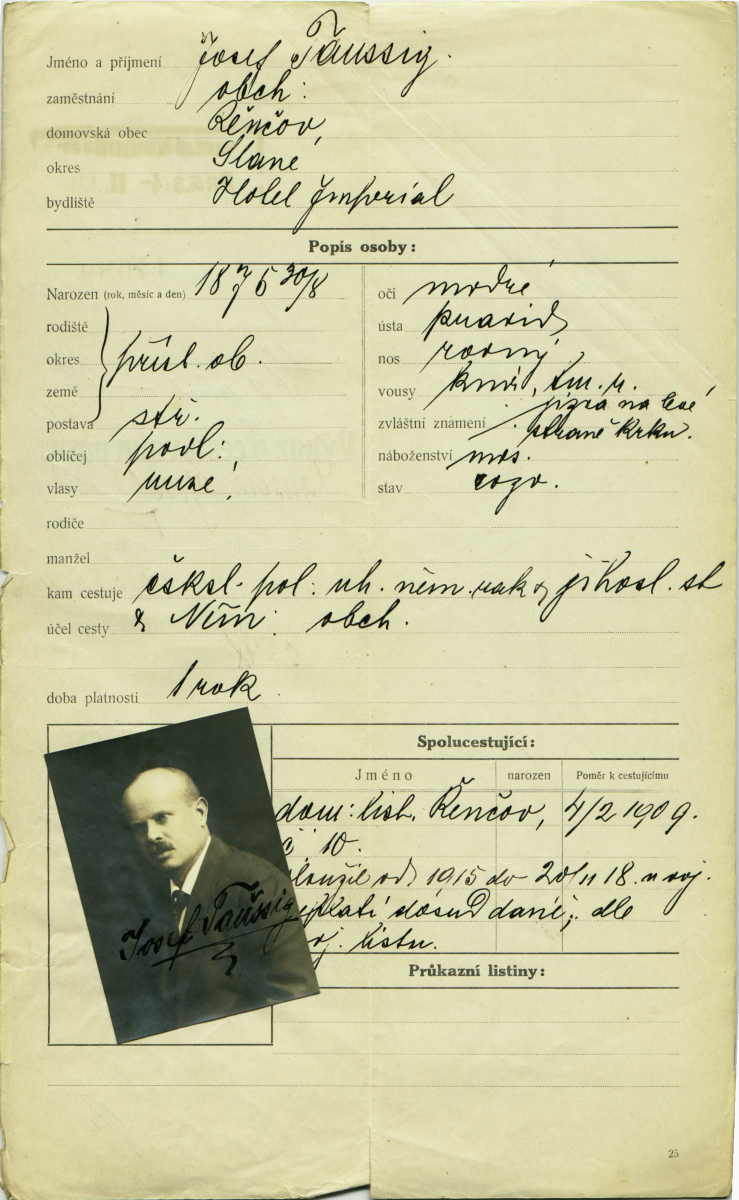 Jméno a příjmení Josef Taussig.
zaměstnání obch:
domovská obec Řenčov,
okres Slané
bydliště Hotel Imperial
Popis osoby:
Narozen (rok, měsíc a den) 1875 30/8
rodiště
okres přísl. ob.
země
postava stř.
obličej podl:
vlasy
oči modré
ústa pravid
nos rovný
vousy knír, tm. r.
zvláštní znamení jizva na levé
straně krku.
náboženství mos.
stav rozv.
rodiče
manžel
kam cestuje čsksl. pol: uh. něm. rak & jihosl. st
účel cesty & Něm: obch.
doba platnosti 1 rok
Spolucestující:
Jméno narozen Poměr k cestujícímu
dom: list. Řenčov, 4/2 1909.
č 10.
sloužil od 1915 do 20/11 18. u voj.
dosud dle
voj. listu.
Josef Taussig
Průkazní listiny:
25